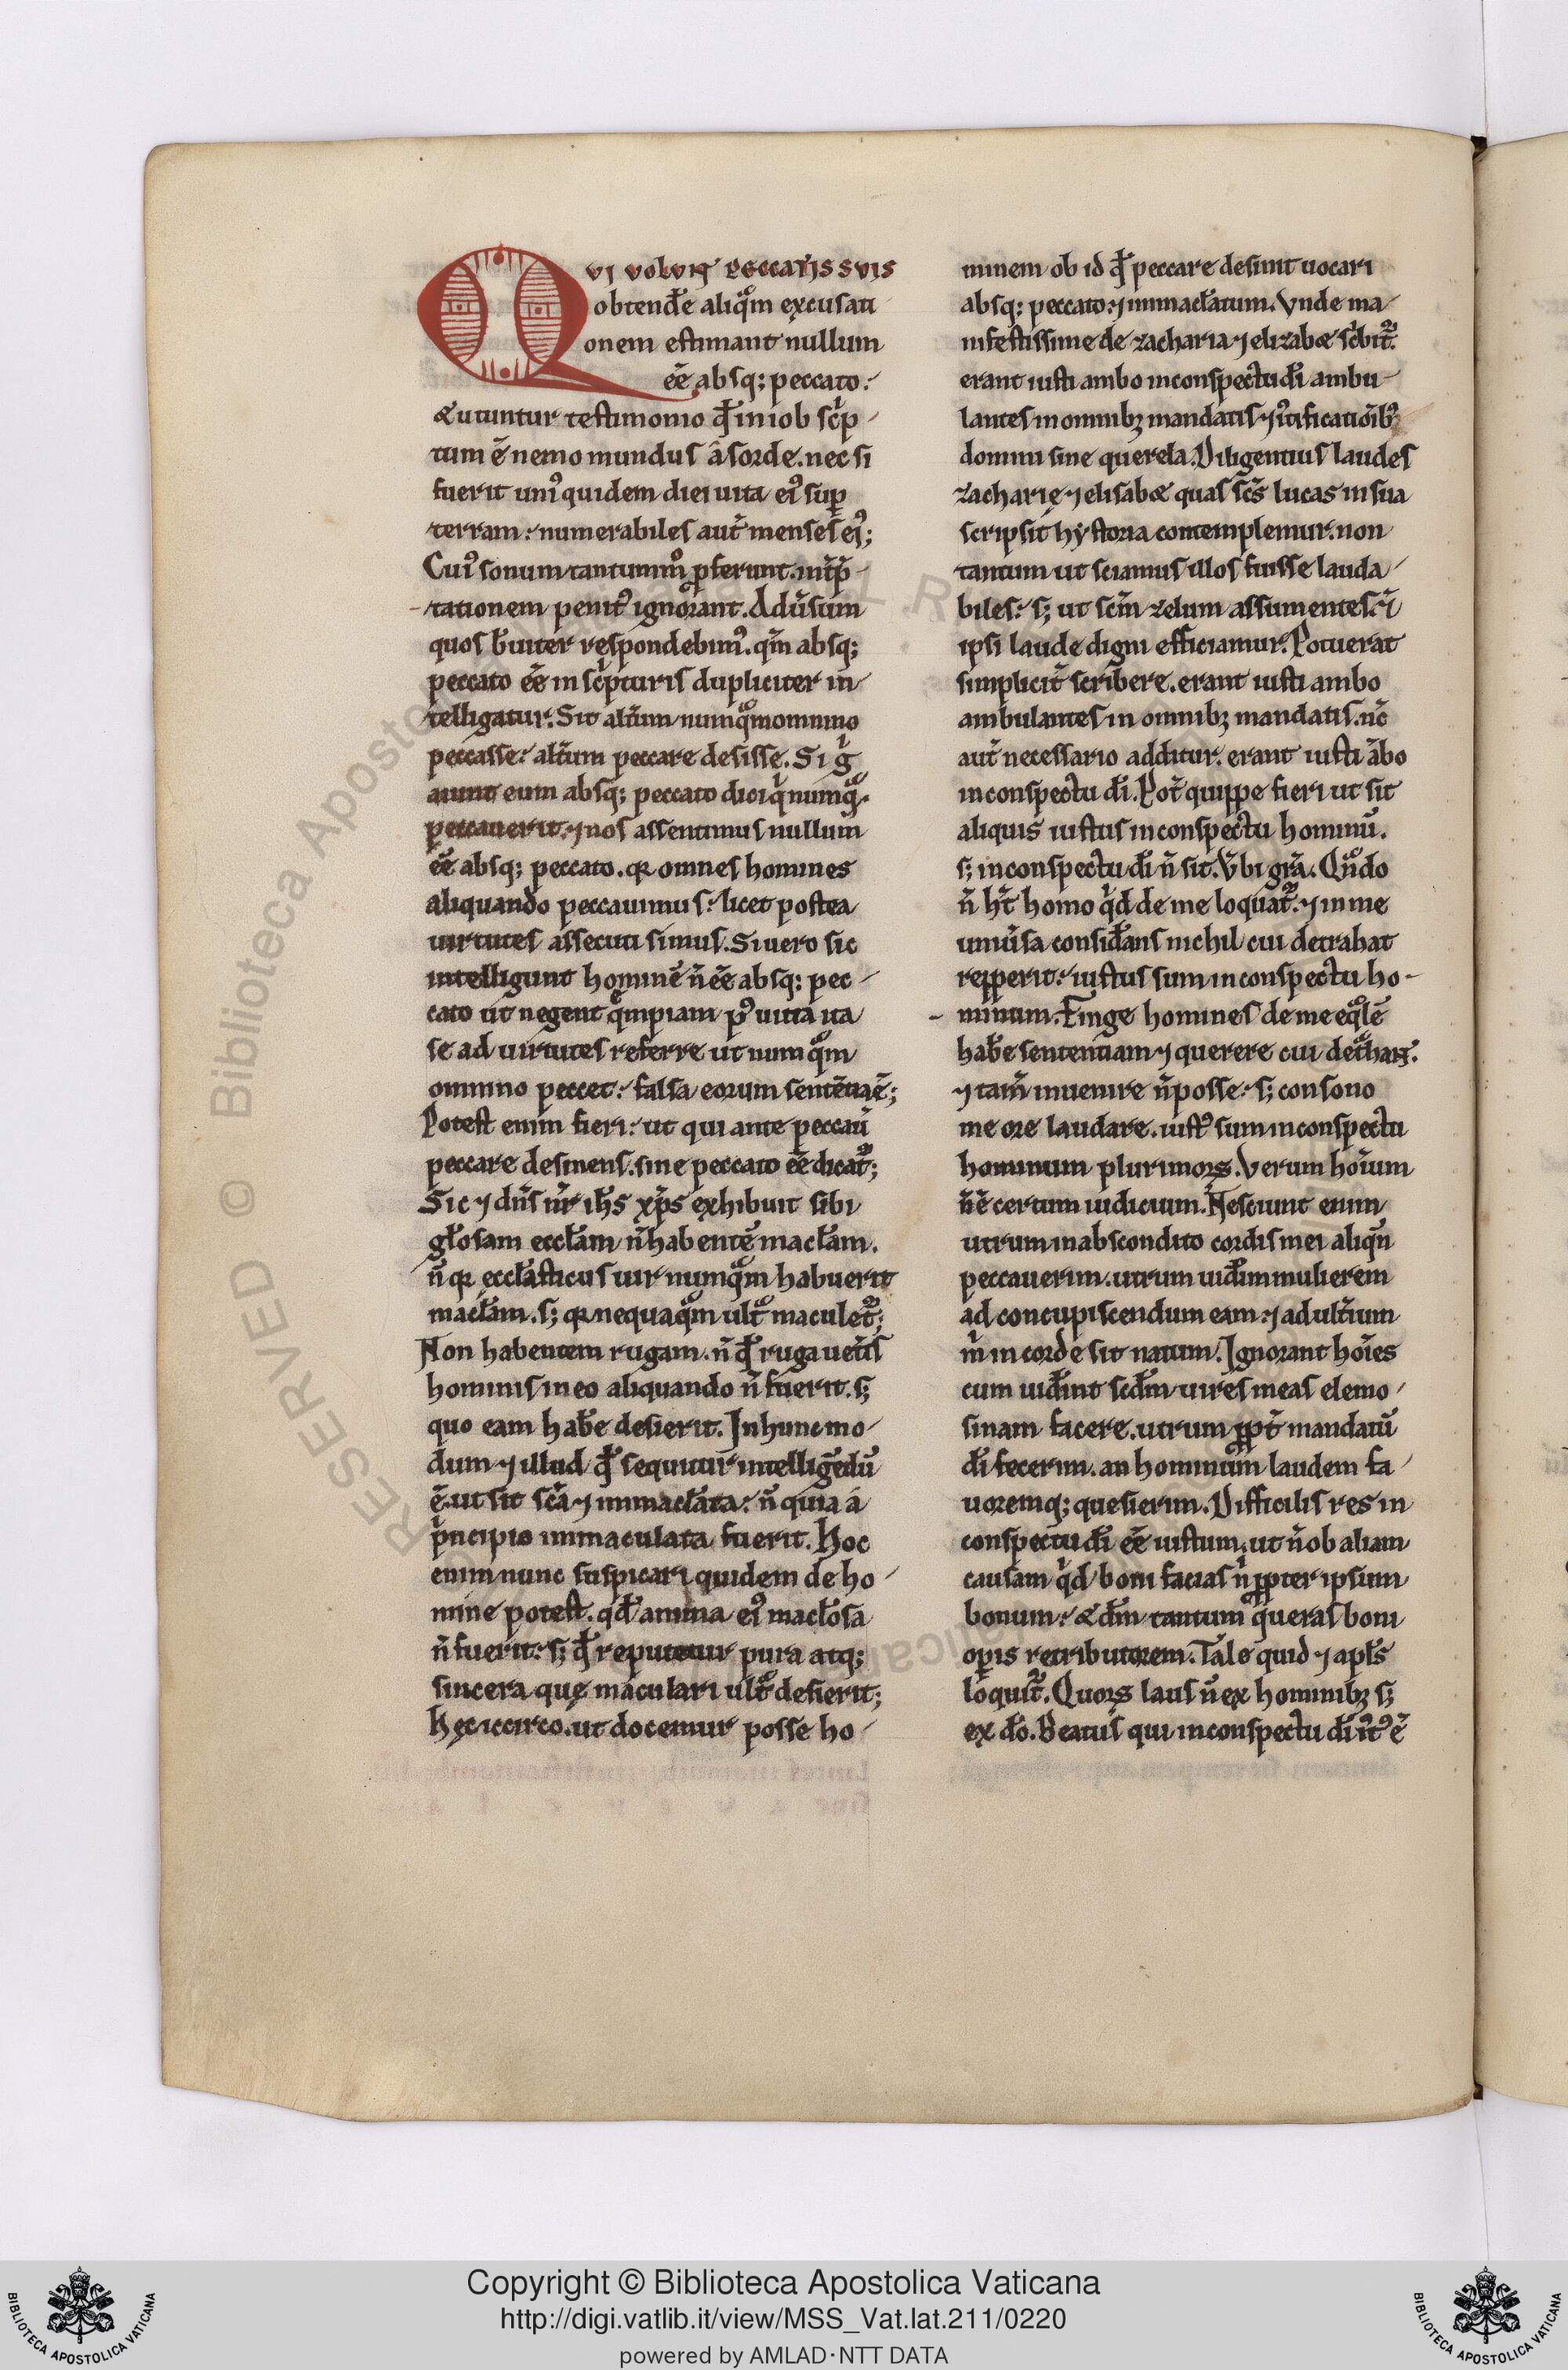 QVI VOLVNT PECCATIS SVIS
obtend̄e aliq̊m excusati
onem estimant nullum
ee̅ absq; peccato.
& utuntur testimonio qđ in iob sc̍p
tum ē nemo mundus a sorde. nec si
fuerit uni᷒ quidem diei uita ei᷒ suꝑ
terram. numerabiles aut̄ menses ei᷒;
Cui᷒ sonum tantummo̊ ꝓferunt. int̄p̄
tationem penit᷒ ignorant. Adūsum
quos b̄uiter respondebim᷒. qm̄ absq;
peccato ee̅ in sc̍pturis dupliciter in
telligatur. Sit alt̄um numq̊m omnino
peccasse. alt̄um peccare desisse. Si g̍
aiunt eum absq; peccato dici q̍ numq̊
peccauerit. ⁊ nos assentimus nullum
ee̅ absq; peccato. qꝛ omnes homines
aliquando peccauimus. licet postea
uirtutes assecuti simus. Si uero sic
intelligunt hominē n̄ ee̅ absq; pec
cato ut negent q̄mpiam p᷒ uitia ita
se ad uirtutes referre ut numq̊m
omnino peccet. falsa eorum sentētia ē;
Potest enim fieri. ut qui ante peccau̅
peccare desinens. sine peccato ee̅ dicat᷑;
Sic ⁊ dn̄s nr̄ ih̄s xp̄s exhibuit sibi
gl̄osam eccl̄am n̄ habentē macl̄am.
n̄ qꝛ eccl̄asticus uir numq̊m habuerit
macl̄am. s; qꝛ nequaq̊m ult̊ maculet᷑;
Non habentem rugam. n̄ qđ ruga uet̄is
hominis in eo aliquando n̄ fuerit. s;
quo eam hab̄e desierit. In hunc mo
dum ⁊ illud qđ sequitur intelligēdū
ē. ut sit sc̄a ⁊ immacl̄ata. n̄ quia a
p̍ncipio immaculata fuerit. Hoc
enim nunc suspicari quidem de ho
mine potest. qđ anima ei᷒ macl̄osa
n̄ fuerit. s; qđ reputetur pura atq;
sincera quę maculari ult̊ desierit;
Hęc iccirco. ut docemur posse ho
minem ob id qđ peccare desiint uocari
absq; peccato. ⁊ immacl̄atum. Vnde ma
nifestissime de zacharia ⁊ elizabæ sc̍bit᷑.
erant iusti ambo in conspectu dī ambu
lantes in omnibꝫ mandatis ⁊ i᷒tificatiōibꝫ
domni sine querela. Diligentius laudes
zacharię ⁊ elisabæ quas sc̄s lucas in sua
scripsit hẏstoria contemplemur. non
tantum ut sciamus illos fuisse lauda
biles. s; ut sc̄m zelum assumentes. ⁊
ipsi laude digni efficiamur. Potuerat
simplicit̄ scribere. erant iusti ambo
ambulantes in omnibꝫ mandatis. nc̄
aut̄ necessario additur. erant iusti ābo
in conspectu dī. Pot̄ quippe fieri ut sit
aliquis iustus in conspectu hominū.
s; in conspectu dī n̄ sit. V̄bi gr̄a. Qn̊do
n̄ ht̄ homo q̍d de me loquat᷑. ⁊ in me
uniūsa consid̄ans nichil cui detrahat
repperit. iustus sum in conspectu ho
minum. Finge homines de me eq̊lē
hab̄e sententiam ⁊ querere cui det̊hant.
⁊ tam̄ inuenire n̄ posse. s; consono
me ore laudare. iust᷒ sum in conspectu
hominum plurimoꝝ. Verum hoīum
n̄ ē certum iudicium. Nesciunt enim
utrum in abscondito cordis mei aliqn̄
peccauerim. utrum uid̄im mulierem
ad concupiscendum eam. ⁊ adult̄ium
m̍ in corde sit natum. Ignorant hoīes
cum uid̄int scd̄m uires meas elemo
sinam facere. utrum ꝓpt̄ mandatū
dī fecerim. an hominum laudem fa
uoremq; quesierim. Difficilis res in
conspectu dī ee̅ iustum. ut n̄ ob aliam
causam q̍d boni facias n̍ ꝓpter ipsum
bonum. & dm̄ tantum queras boni
oꝑis retributorem. Tale quid ⁊ apl̄s
loquit᷑. Quoꝝ laus n̄ ex hominibꝫ s;
ex do̅. Beatus qui in conspectu dī i᷒t᷒ ē
RESERVED © Biblioteca Apostolica Vaticana
Copyright © Biblioteca Apostolica Vaticana
http://digi.vatlib.it/view/MSS_Vat.lat.211/0220
powered by AMLAD·NTT DATA
BIBLIOTECA APOSTOLICA VATICANA
BIBLIOTECA APOSTOLICA VATICANA